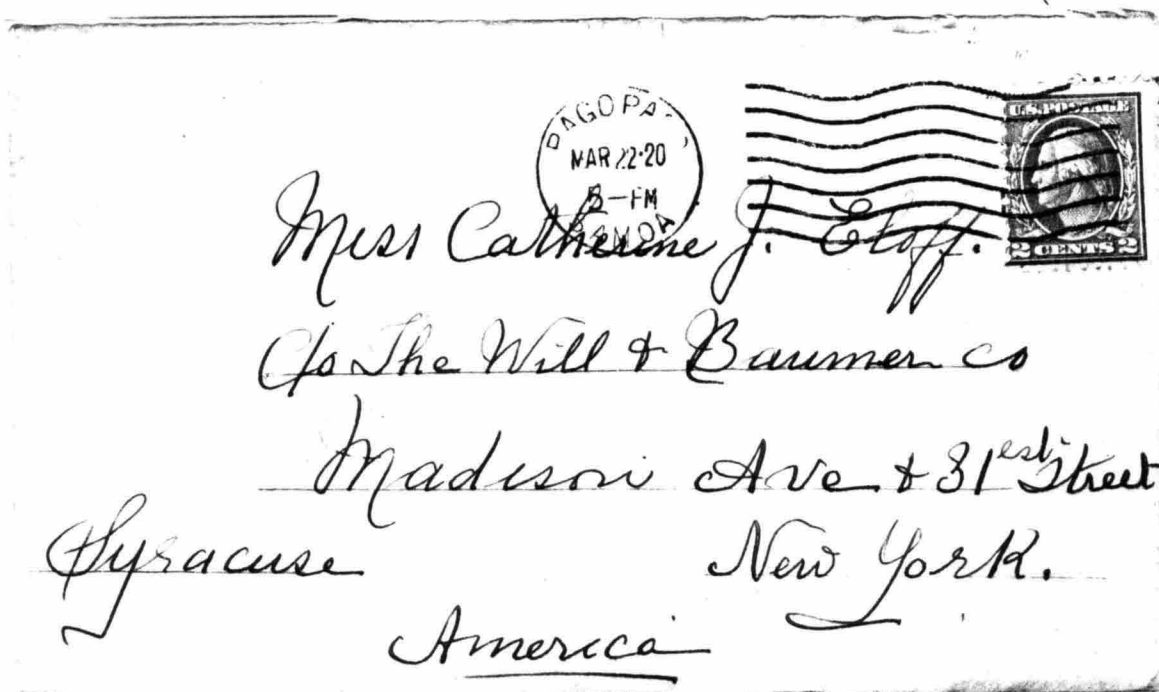 PAGO PA
MAR 22·20
5-PM
SAMOA
U.S. POSTAGE
2 CENTS 2
Miss Catherine J. Etoff.
C/o The Will & Baumer Co
Madison Ave & 31est Street
Syracuse New York.
America